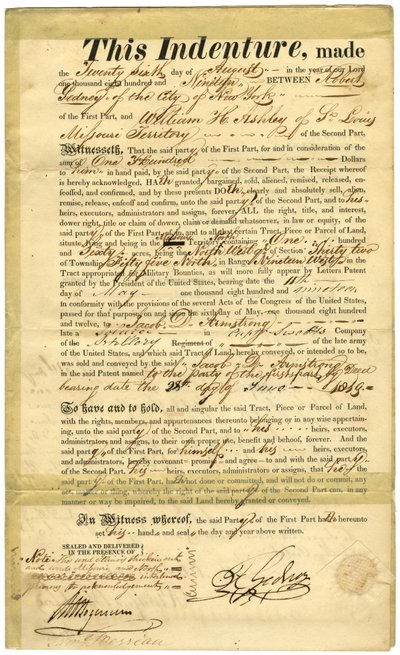 This Indenture, made
the Twenty Sixth day of August in the year of our Lord
one thousand eight hundred and Nineteen BETWEEN Robert
Gedney of the City of New York
of the First Part, and William H. Ashley of St. Louis
Missouri Territory of the Second Part,
Witnesseth, That the said party of the First Part, for and in consideration of the
sum of One Hundred Dollars
to him in hand paid, by the said party of the Second Part, the Receipt whereof
is hereby acknowledged, Hath granted, bargained, sold, aliened, remised, released, enfeoffed,
and confirmed, and by these presents DOth clearly and absolutely sell, alien,
remise, release, enfeoff and confirm, unto the said party of the Second Part, and to his
heirs, executors, administrators and assigns, forever, ALL the right, title, and interest,
dower right, title or claim of dower, claim or demand whatsoever, in law or equity, of the
said party of the First Part, in and to all that certain Tract, Piece or Parcel of Land,
situate, lying and being in the Missouri Territory containing One hundred
and Sixty acres, being the North West qr of Section Thirty two
of Township Fifty five North, in Range Nineteen West, in the
Tract appropriated for Military Bounties, as will more fully appear by Letters Patent
granted by the President of the United States, bearing date the
day of May one thousand eight hundred and nineteen,
in conformity with the provisions of several Acts of the Congress of the United States,
passed for that purpose on and upon the sixth day of May, one thousand eight hundred
and twelve, to Jacob D. Armstrong
late a in Company
of the Artillery Regiment of of the late army
of the United States, and which said Tract of Land hereby conveyed, or intended to be,
was sold and conveyed by the said Jacob D. Armstrong
in the said Patent named to the party of the first part by Deed
bearing date the 28th day of June 1819
To have and to hold, all and singular the said Tract, Piece or Parcel of Land,
with the rights, members, and appurtenances thereunto belonging or in any wise appertaining,
unto the said party of the Second Part, and to his heirs, executors,
administrators and assigns, to their only proper use, benefit and behoof, forever. And the
said party of the First Part, for himself and his heirs, executors, and
administrators, hereby covenant promise and agree to and with the said party of
the Second Part, his heirs, executors, administrators or assigns, that he the
said party of the First Part, hath not done or committed, and will not do or commit, any
act, matter or thing, whereby the right of the said party of the Second Part can, in any
manner or way be impaired, to the said Land hereby granted or conveyed.
In Witness whereof, the said Party of the First Part hath hereunto
set his hand and seal the day and year above written.
SEALED AND DELIVERED
IN THE PRESENCE OF
Note the word Illinois stricken out
and words Missouri and North
interlined
previous to acknowledgement
R Gedney